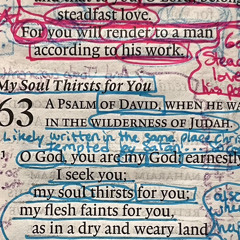 steadfast love.
For you will render to a man
according to his work.
My Soul Thirsts for You
63 A PSALM OF DAVID, WHEN HE WA
IN THE WILDERNESS OF JUDAH.
Likely written in the same place Chri
tempted by Satan...
O God, you are my God; earnestly
I seek you;
my soul thirsts for you;
my flesh faints for you,
as in a dry and weary land